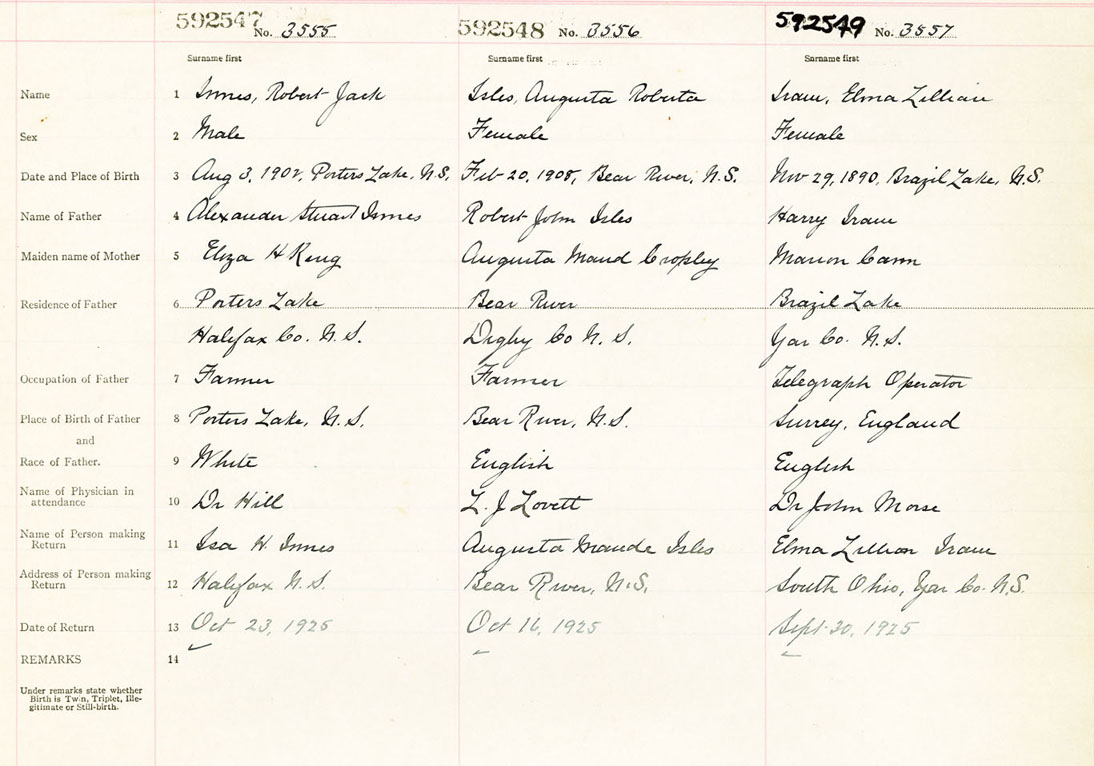 592547 No. 3555 592548 No. 3556 592549 No. 3557
Surname first Surname first Surname first
Name 1 Innes, Robert Jack Isles, Augusta Roberta Elma Lillian
Sex 2 Male Female Female
Date and Place of Birth 3 Aug 3, Porters Lake, N.S. Feb 20, 1908, Bear River, N.S. Nov 29, 1890, Brazil Lake, N.S.
Name of Father 4 Alexander Stuart Innes Robert John Isles Harry
Maiden name of Mother 5 Eliza H Augusta Maud Cropley Marion Cann
Residence of Father 6 Porters Lake Bear River Brazil Lake
Halifax Co. N.S. Digby Co N.S. Yar Co. N.S.
Occupation of Father 7 Farmer Farmer Telegraph Operator
Place of Birth of Father 8 Porters Lake, N.S. Bear River, N.S. Surrey, England
and
Race of Father. 9 White English English
Name of Physician in
attendance 10 Dr Hill L. J Lovett Dr John Morse
Name of Person making
Return 11 Isa W. Innes Augusta Maude Isles Elma Lillian
Address of Person making
Return 12 Halifax N.S. Bear River, N.S. South Ohio, Yar Co. N.S.
Date of Return 13 Oct 23, 1925 Oct 16, 1925 Sept. 30, 1925
REMARKS 14
Under remarks state whether
Birth is Twin, Triplet, Ille-
gitimate or Still-birth.